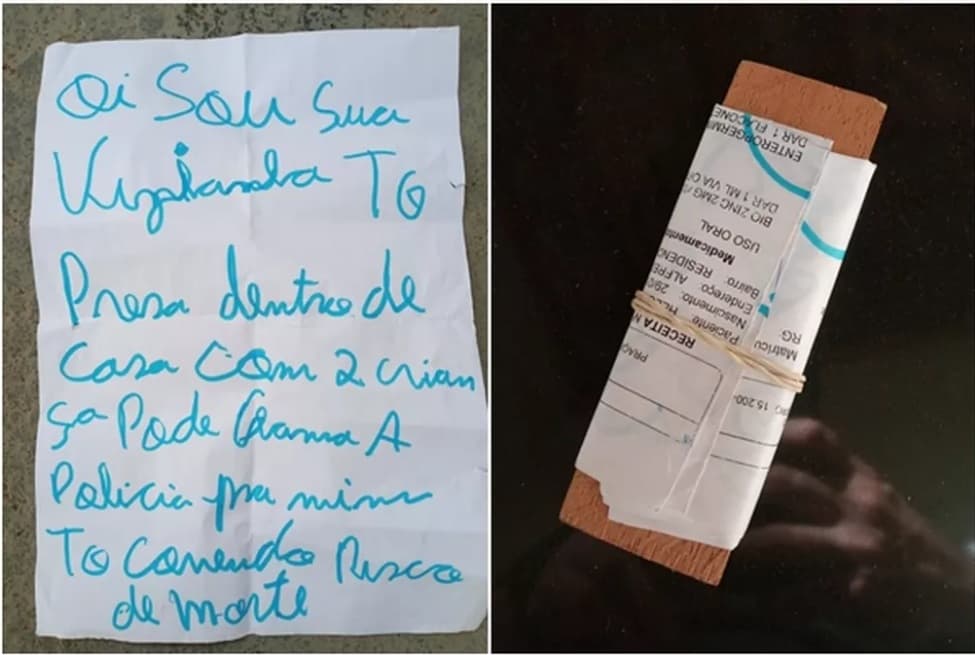 Oi Sou sua
Vizinha TO
Presa dentro de
Casa Com 2 crian
ça Pode Chama A
Policia pra mim
To Correndo Risco
de morte
ENTEROGERMI
DAR 1 FLACONE
BIO ZINC 2MG /
DAR 1 ML VIA O
USO ORAL
Medicament
Bairro: RESIDEN
Endereço: ALFRE
Nascimento: 29/
Paciente:
RG:
Matrícu
RECEITA M
PRAÇ
15.200-